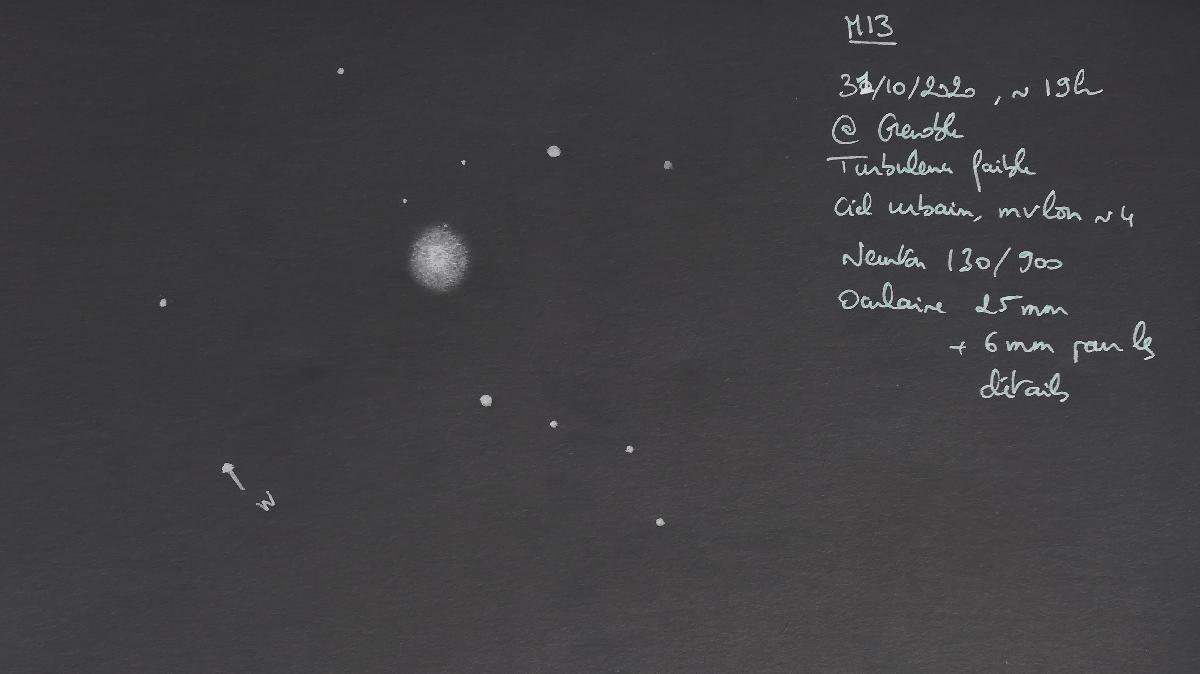 M13
31/10/2020, ~ 19h
@ Grenoble
Turbulence faible
Ciel urbain, mvlon ~ 4
Newton 130/900
Oculaire 25 mm
+ 6 mm pour les
détails
W